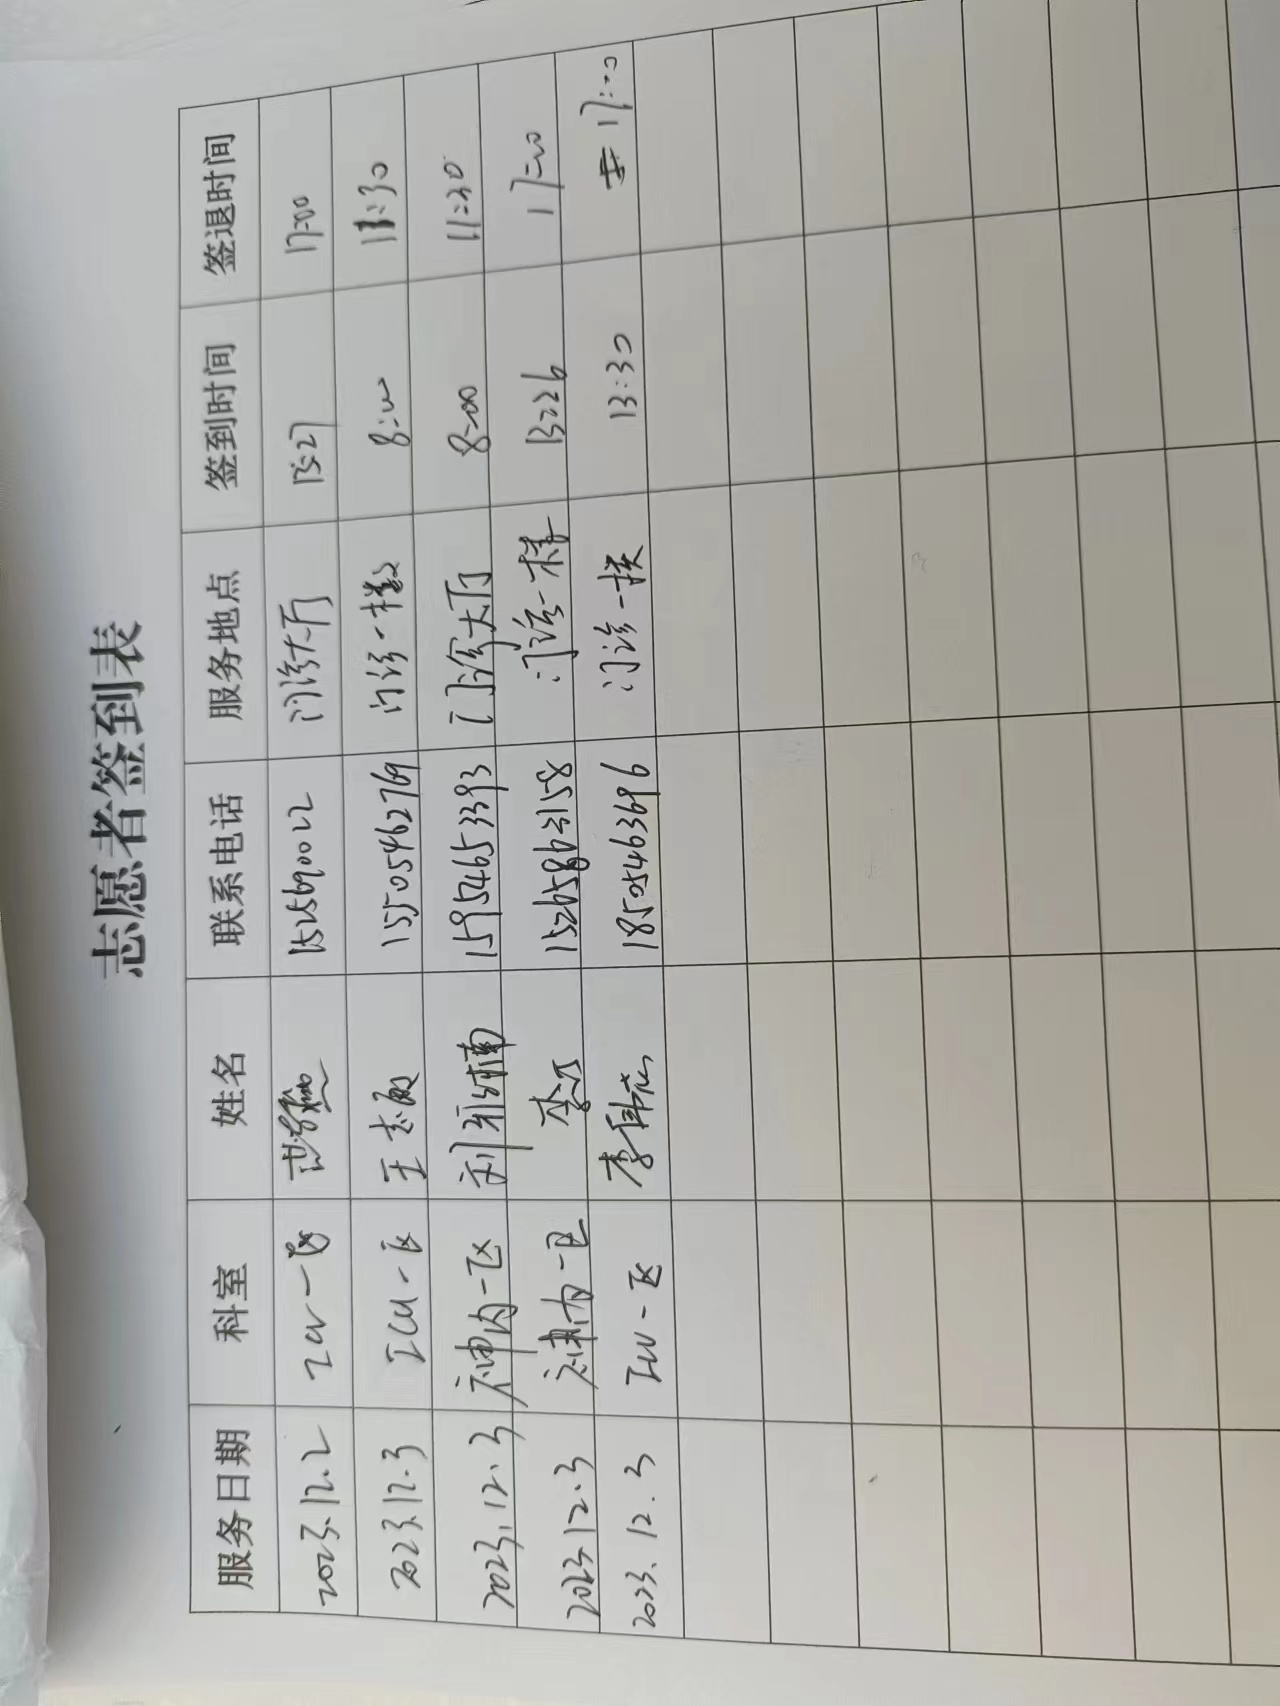 志愿者签到表
服务日期 科室 姓名 联系电话 服务地点 签到时间 签退时间
2023.12.2 ICU一区 门诊大厅 13:27 17:00
2023.12.3 ICU一区 王志敏 15505462769 门诊一楼 8:00 11:30
2023.12.3 神内一区 刘雅楠 15954653393 门诊大厅 8:00 11:30
2023.12.3 神内一区 门诊一楼 13:26 17:00
2023.12.3 ICU一区 18505463696 门诊一楼 13:30 17:00